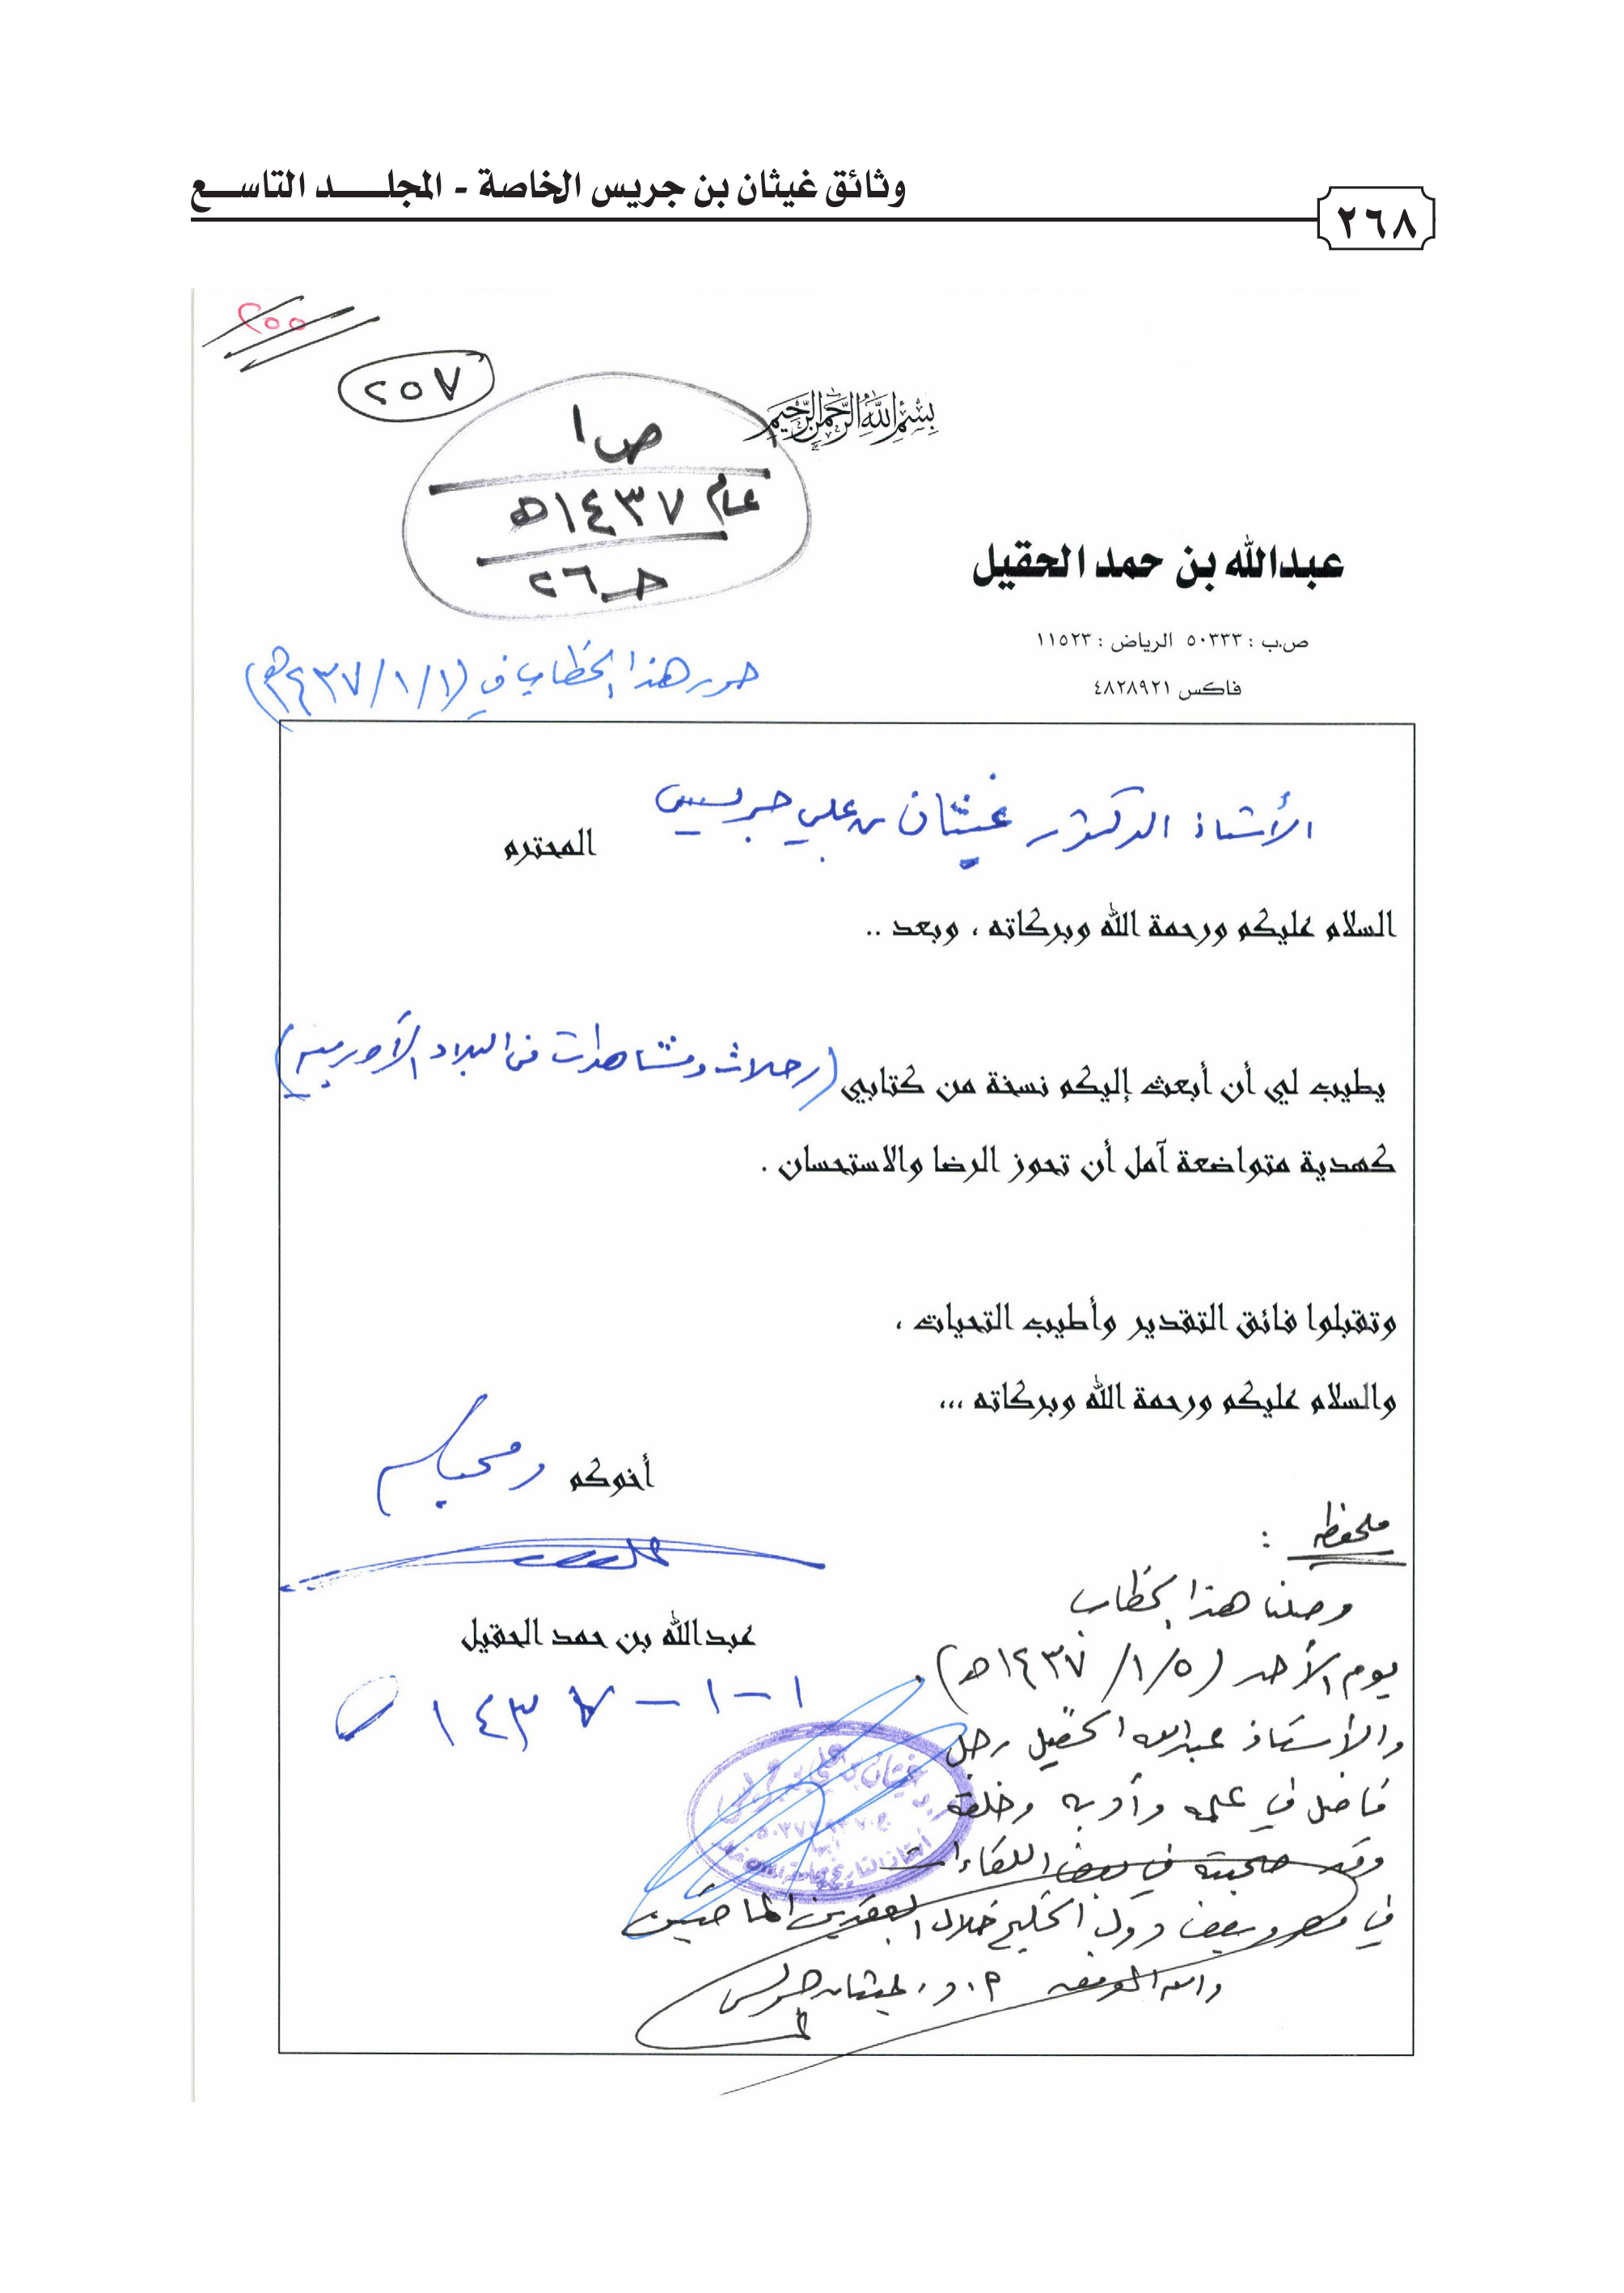 وثائق غيثان بن جريس الخاصة - المجلد التاسع
٢٦٨
٢٥٥
٢٥٧
بسم الله الرحمن الرحيم
ص ١
عام ١٤٣٧هـ
حـ ٢٦
عبدالله بن حمد الحقيل
ص.ب : ٥٠٣٣٣ الرياض : ١١٥٢٣
فاكس ٤٨٢٨٩٢١
حرر هذا الخطاب في (١/١/١٤٣٧هـ)
الأستاذ الدكتور غيثان بن علي جريس المحترم
السلام عليكم ورحمة الله وبركاته ، وبعد ..
يطيب لي أن أبعث إليكم نسخة من كتابي (رحلات ومشاهدات في البلاد الأوربية)
كهدية متواضعة آمل أن تحوز الرضا والاستحسان .
وتقبلوا فائق التقدير وأطيب التحيات ،
والسلام عليكم ورحمة الله وبركاته ...
أخوكم ومحبكم
عبدالله بن حمد الحقيل
١-١-١٤٣٧
ملحظة :
وصلنا هذا الخطاب
يوم الأحد (١/٥/ ١٤٣٧هـ)
والأستاذ عبدالله الحقيل رجل
فاضل في علمه وأدبه وخلقه
وقد صحبته في بعض اللقاءات
في مصر وبعض دول الخليج خلال العقدين الماضيين
والله الموفق أ.د. غيثان جريس